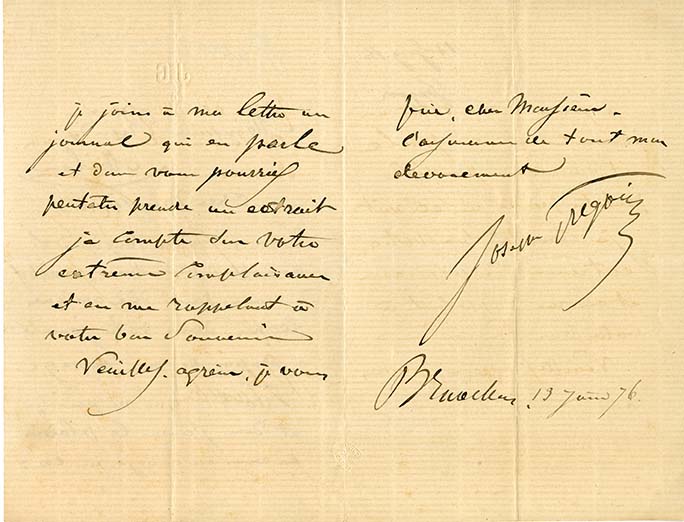 je joins à ma lettre un
journal qui en parle
et dont vous pourriez
peutetre prendre un extrait
je compte sur votre
extrême complaisance
et en me rappelant à
votre bon souvenir
Veuillez agréer, je vous
prie, cher Monsieur,
l'assurance de tout mon
devouement
Joseph
Bruxelles, 13 76